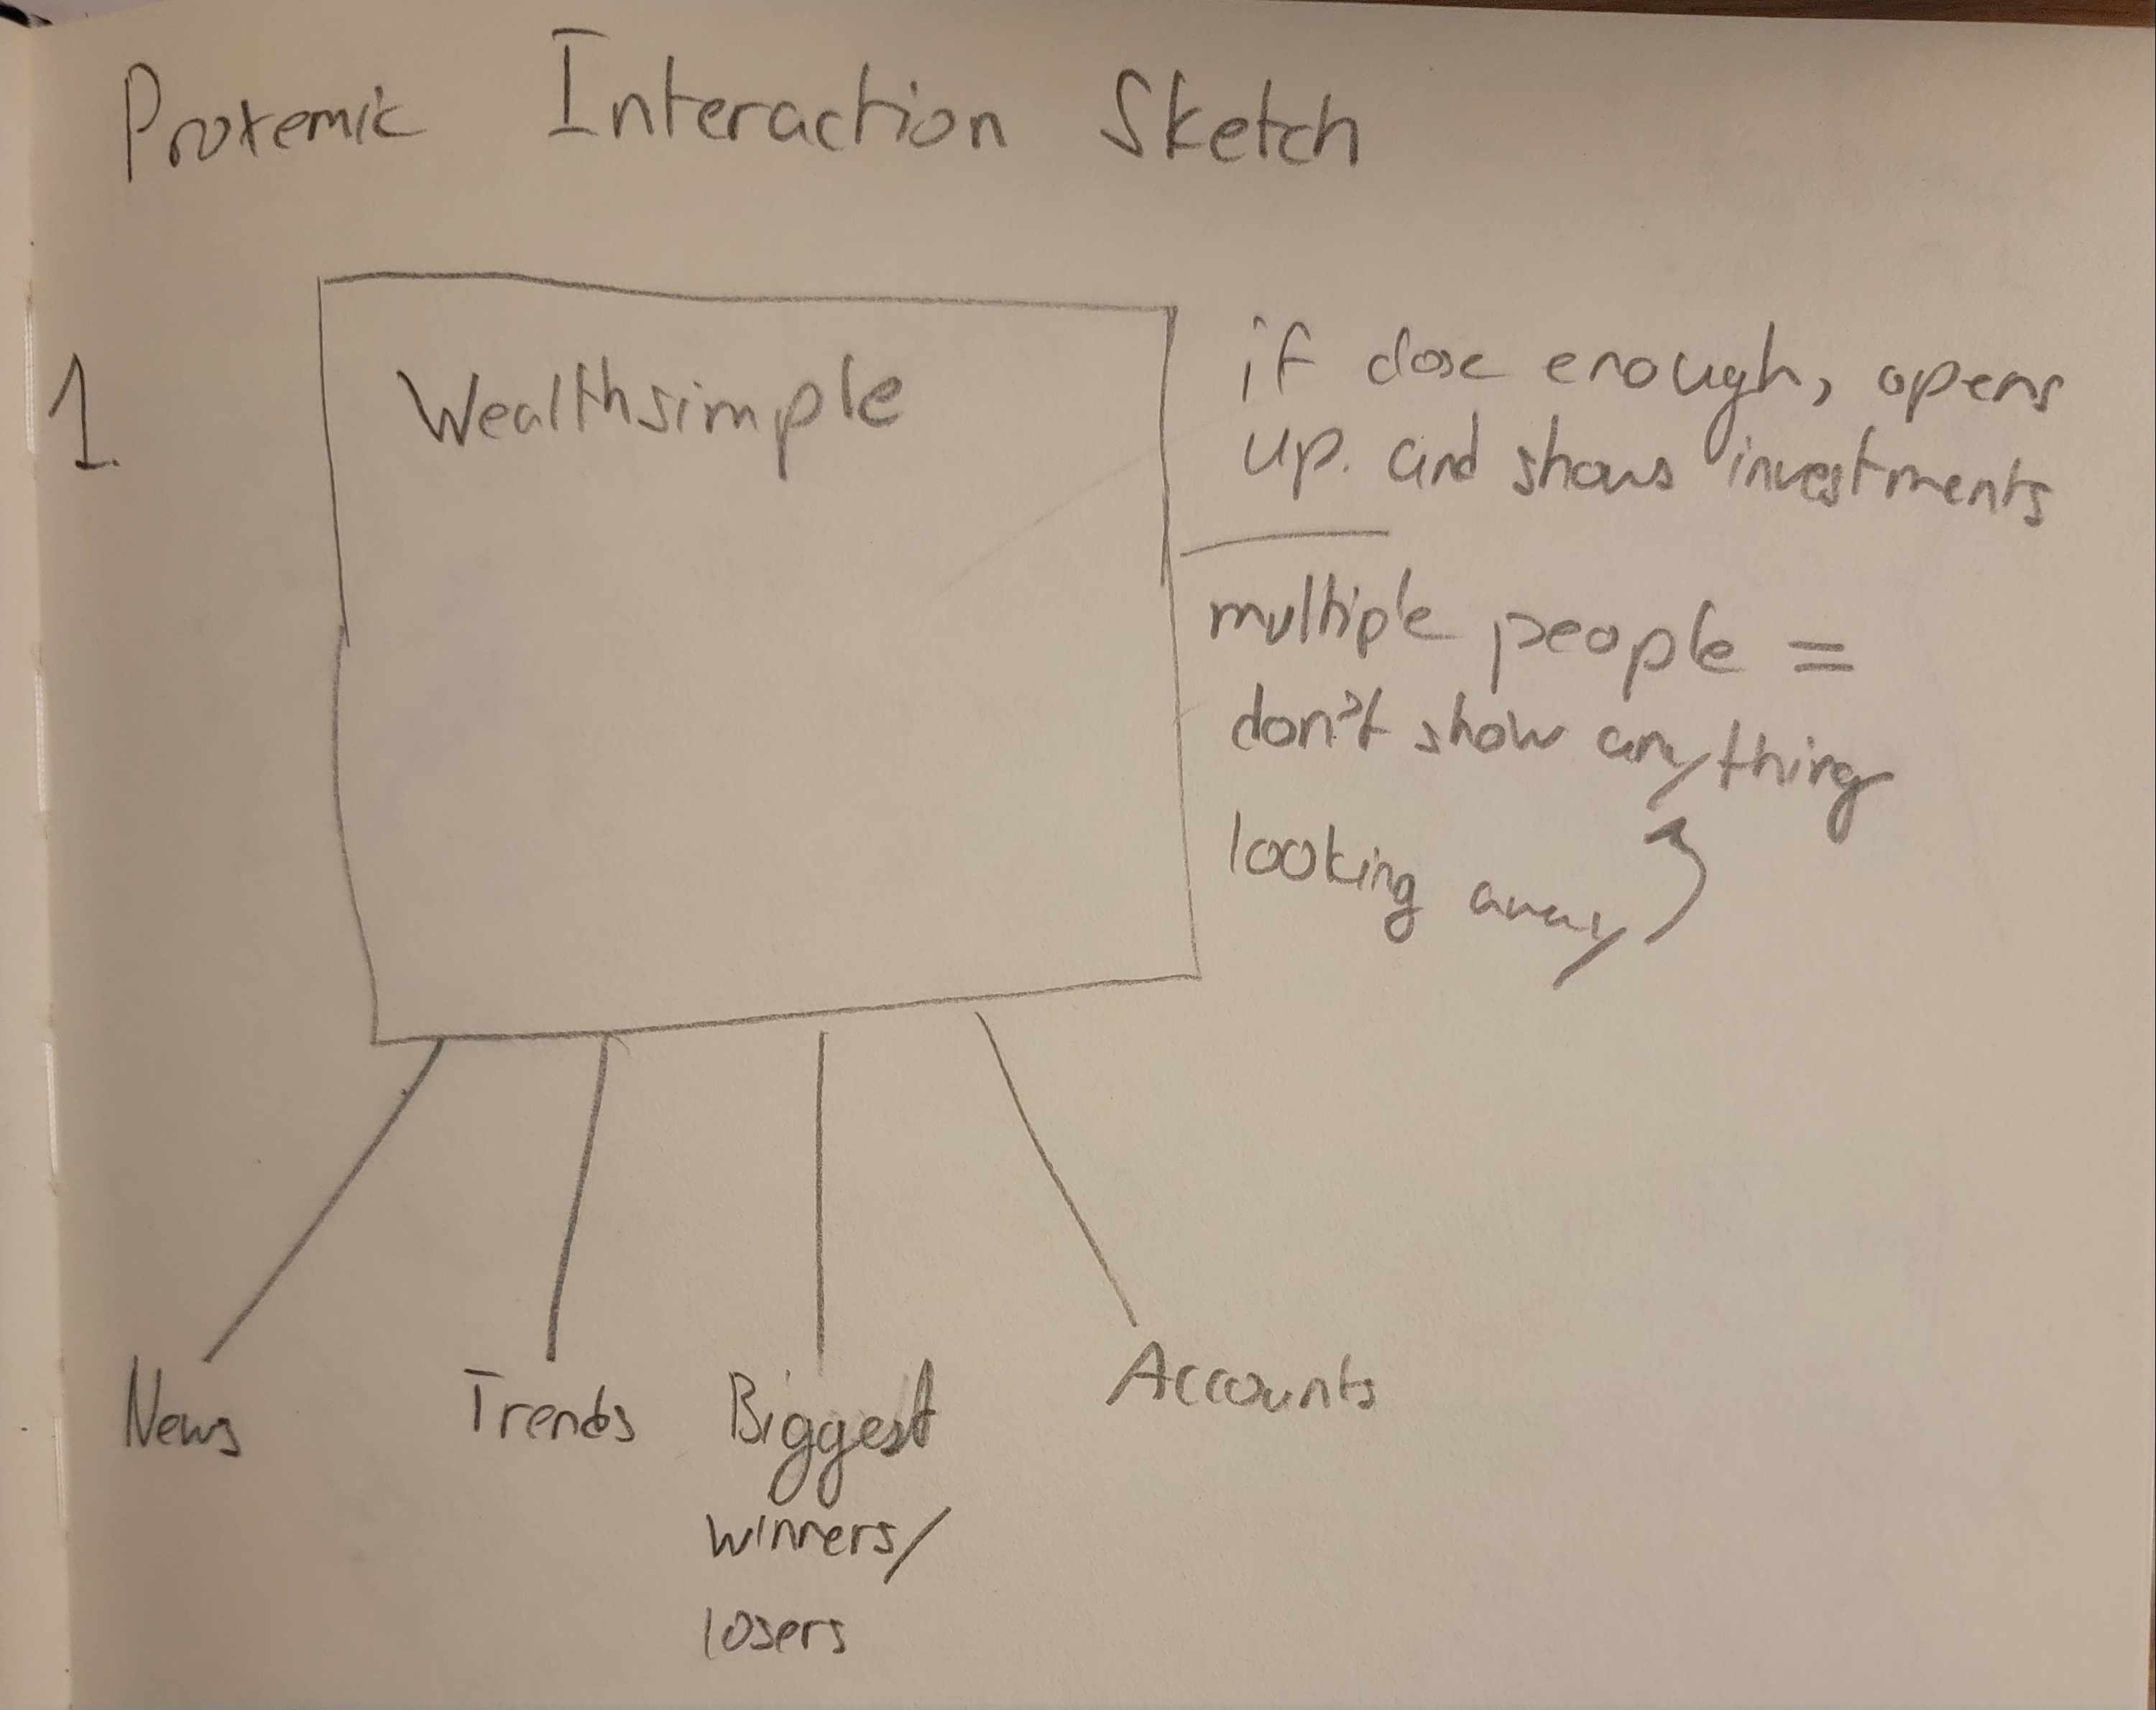 Proxemic Interaction Sketch
1.
Wealthsimple
if close enough, opens
up. and shows investments
multiple people =
don't show anything
looking away
News
Trends
Biggest
winners/
losers
Accounts